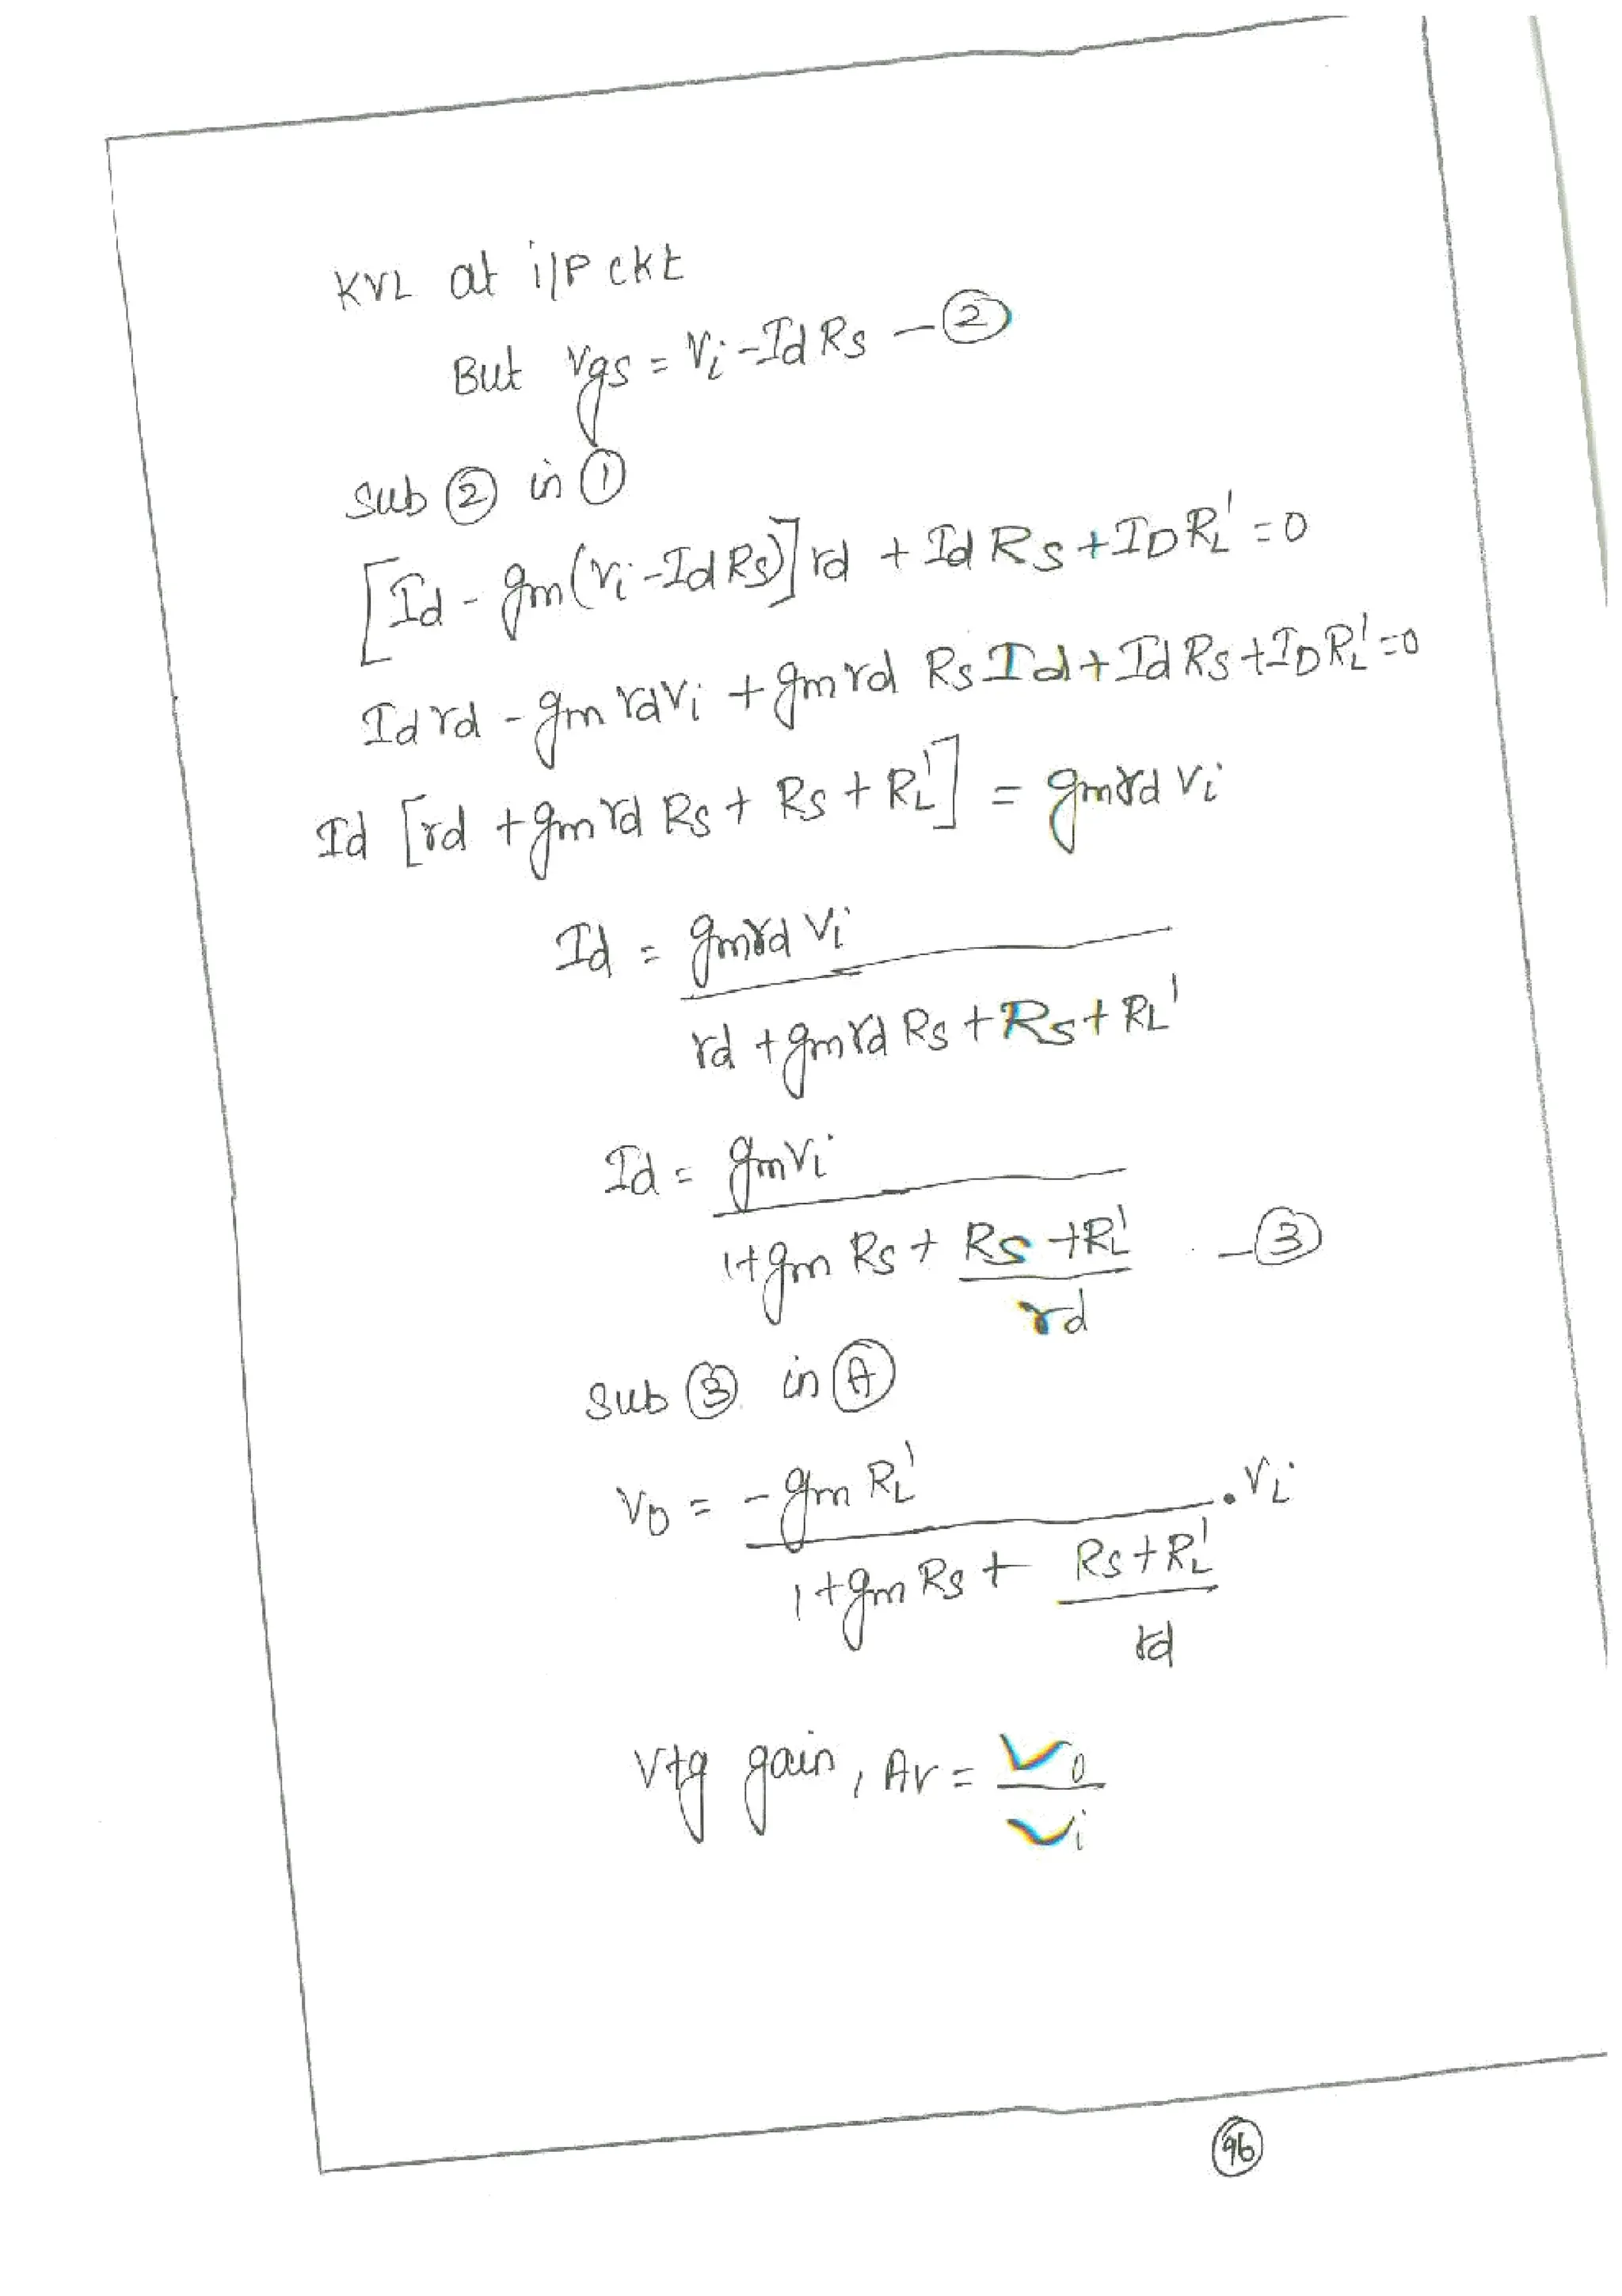 KVL at i/p ckt
But Vgs = Vi - Id Rs - ②
Sub ② in ①
[Id - gm(Vi - Id Rs)] rd + Id Rs + ID RL' = 0
Id rd - gm rd Vi + gm rd Rs Id + Id Rs + ID RL' = 0
Id [rd + gm rd Rs + Rs + RL'] = gm rd Vi
Id = gm rd Vi
rd + gm rd Rs + Rs + RL'
Id = gm Vi
1 + gm Rs + Rs + RL' - ③
rd
Sub ③ in Ⓐ
Vo = - gm RL' . Vi
1 + gm Rs + Rs + RL'
rd
Vtg gain, Av = Vo
Vi
96